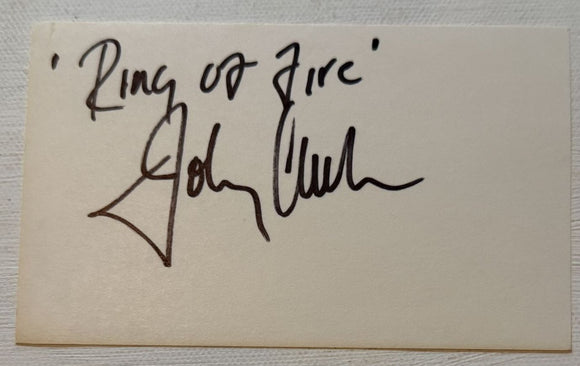 'Ring of Fire'
Johnny Cash